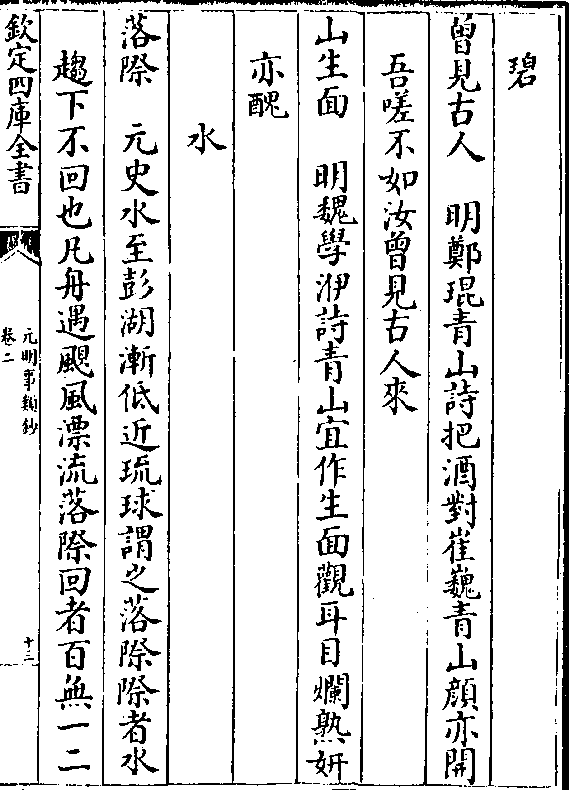 碧
曽見古人　明鄭琨青山詩把酒對崔巍青山顔亦開
吾嗟不如汝曾見古人來
山生面　明魏學洢詩青山宜作生面觀耳目爛熟妍
亦醜
水
落際　元史水至彭湖漸低近琉球謂之落際際者水
趨下不回也凡舟遇颶風漂流落際回者百無一二
欽定四庫全書
元明事類鈔
卷二
十三